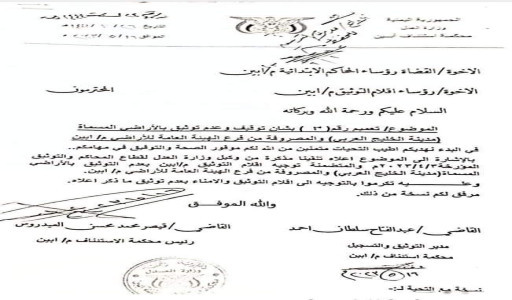 الجمهورية اليمنية
وزارة العدل
محكمة استئناف ابين
الاخوة/ القضاة رؤساء المحاكم الابتدائية م/ابين
الاخوة/ رؤساء اقلام التوثيق م/ابين المحترمون
السلام عليكم ورحمة الله وبركاته
الموضوع/ تعميم رقم (٣) بشان توقيف وعدم توثيق بالأراضي المسماة
(مدينة الخليج العربي) والمصروفة من فرع الهيئة العامة للأراضي م/ ابين
في البدء نهديكم اطيب التحيات متمنين من الله لكم موفور الصحة والتوفيق في مهامكم..
بالإشارة الى الموضوع اعلاه تلقينا مذكرة من وكيل وزارة العدل لقطاع المحاكم والتوثيق
المؤرخة ٢٠٢٣/٤/٣م والمتضمنة توجيه اقلام التوثيق م/ابين بعدم التوثيق بالأراضي
المسماة(مدينة الخليج العربي) والمصروفة من فرع الهيئة العامة للأراضي م/ ابين.
وعليه تكرموا بالتوجيه الى اقلام التوثيق والامناء بعدم توثيق ما ذكر اعلاه.
مرفق لكم نسخة من ذلك.
والله الموفق
القاضي/ عبدالفتاح سلطان احمد القاضي/ قيصر محمد حسن الميدروس
مدير التوثيق والتسجيل رئيس محكمة الاستئناف م/ ابين
محكمة استئناف م/ ابين
نسخة مع التحية لـ:-